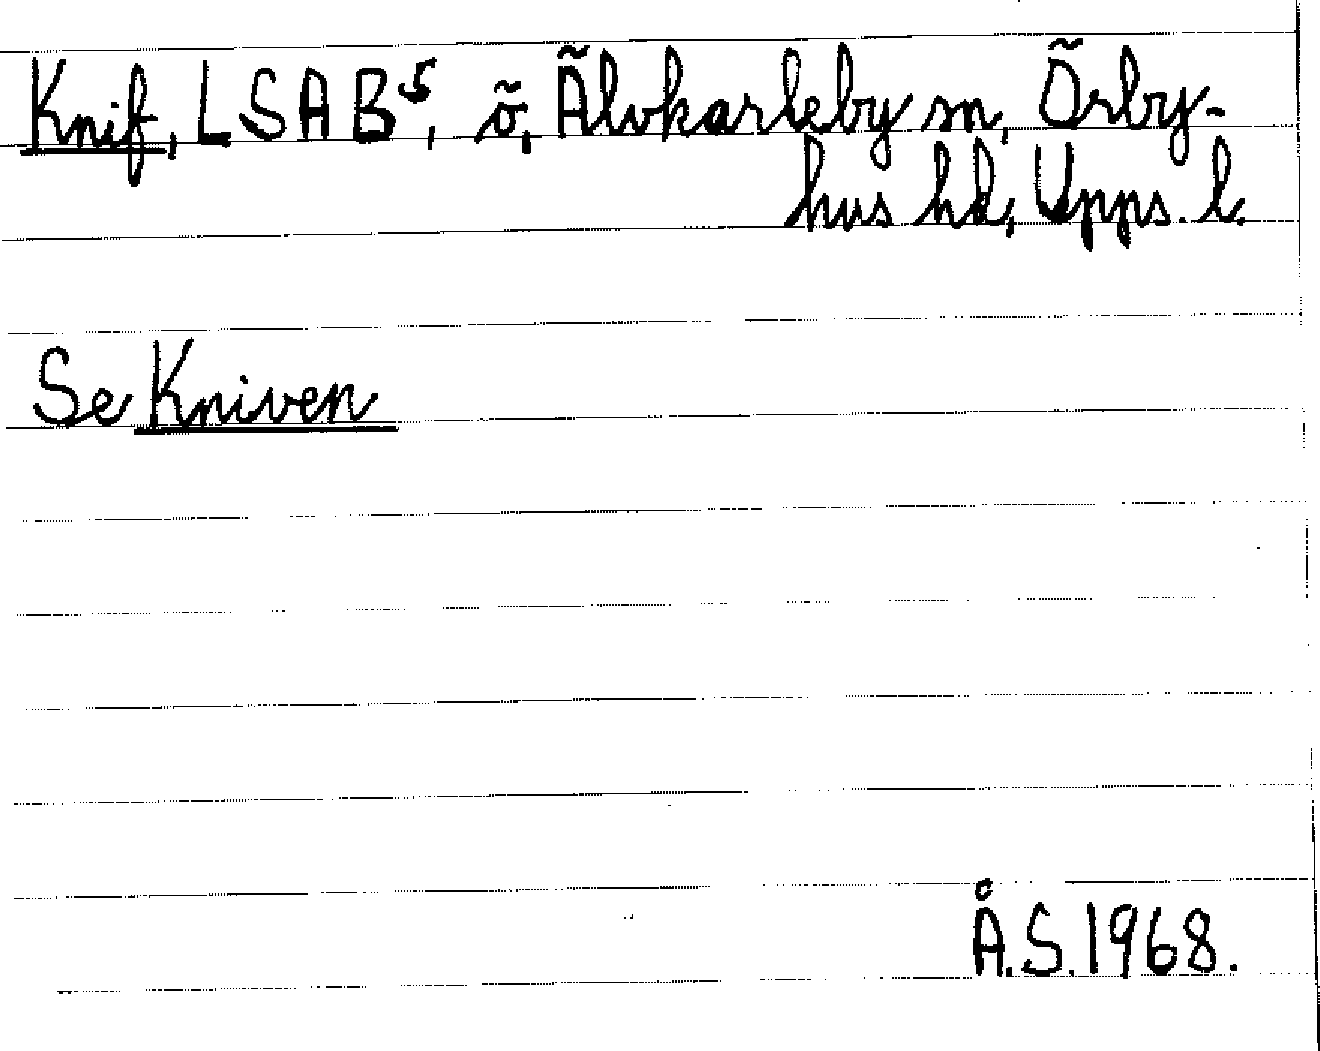 Knif, LSAB⁵, õ, Ãlvkarleby sn, Õrby-
hus hd, Upps. l.
Se Kniven
Å.S. 1968.